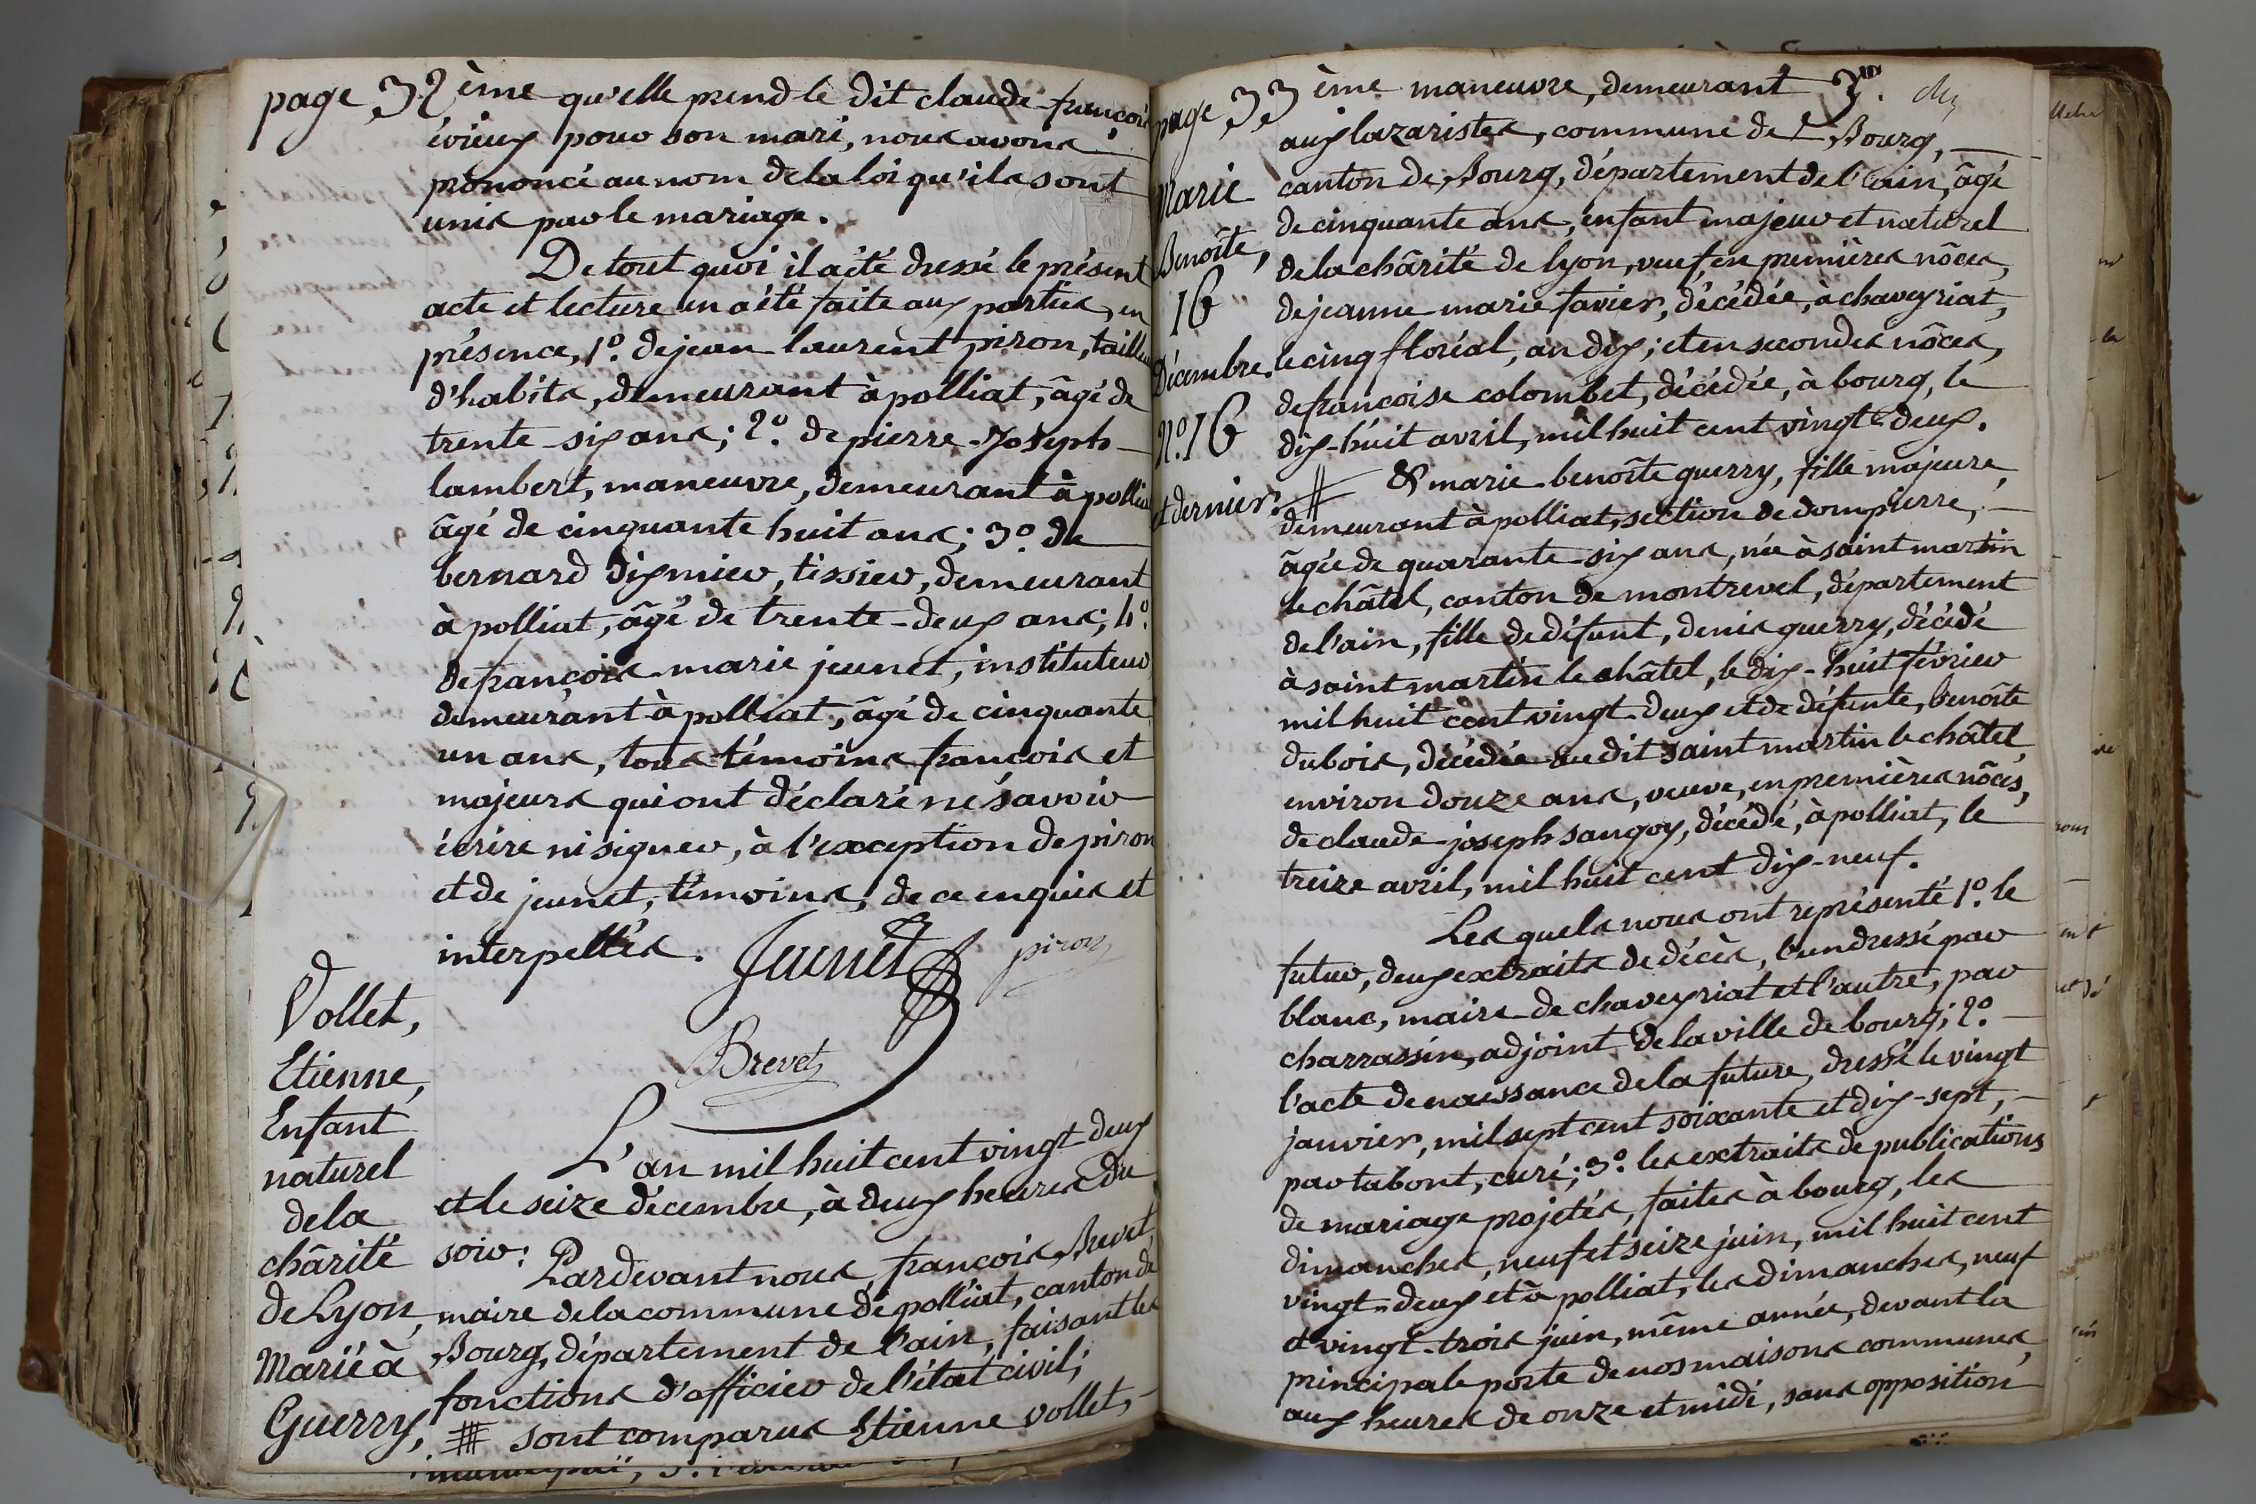 page 32ème qu'elle prend le dit claude-françois
évieux pour son mari, nous avons
prononcé au nom de la loi qu'ils sont
unis par le mariage.
De tout quoi il a été dressé le présent
acte et lecture en a été faite aux parties, en
présence, 1°. de jean-laurent piron, tailleur
d'habits, demeurant à polliat, âgé de
trente-six ans; 2°. de pierre-Joseph
lambert, maneuvre, demeurant à polliat
âgé de cinquante huit ans; 3°. de
bernard dixmier, tissier, demeurant
à polliat, âgé de trente-deux ans; 4°.
de françois-marie jeunet, instituteur
demeurant à polliat, âgé de cinquante
un ans, tous témoins françois et
majeurs qui ont déclaré ne savoir
écrire ni signer, à l'exception de piron
et de jeunet, témoins, de ce enquis et
interpellés. Jeunet piron
Brevet
Vollet,
Etienne,
Enfant
naturel
de la
chârité
de Lyon,
Marié à
Guerry,
L'an mil huit cent vingt deux
et le seize décembre, à deux heures du
soir: Pardevant nous, françois Brevet,
maire de la commune de polliat, canton de
Bourg, département de l'ain, faisant les
fonctions d'officier de l'état civil;
sont comparus Etienne vollet,
page 33ème maneuvre, demeurant
aux lazaristes, commune de Bourg,
canton de Bourg, département de l'ain, âgé
de cinquante ans, enfant majeur et naturel
de la chârité de lyon, veuf, en premières nôces,
de jeanne-marie favier, décédée, à chaveyriat,
le cinq floréal, an dix; et en secondes nôces,
de françoise colombet, décédée, à bourg, le
dix-huit avril, mil huit cent vingt-deux.
Marie
Benoîte,
16
Décembre.
N°. 16
et dernier.
& marie-benoîte guerry, fille majeure,
demeurant à polliat, section de dompierre,
âgée de quarante-six ans, née à saint martin
le châtel, canton de montrevel, département
de l'ain, fille de défunt, denis guerry, décédé
à saint martin le châtel, le dix-huit février
mil huit cent vingt-deux et de défunte, benoîte
dubois, décédée au dit saint martin le châtel
environ douze ans, veuve, en premières nôces,
de claude-joseph sangoy, décédé, à polliat, le
treize avril, mil huit cent dix-neuf.
Les quels nous ont représenté 1°. le
futur, deux extraits de décès, l'un dressé par
blanc, maire de chaveyriat et l'autre, par
charrassin, adjoint de la ville de bourg; 2°.
l'acte de naissance de la future, dressé le vingt
janvier, mil sept cent soixante et dix-sept,
par tabont, curé; 3°. les extraits de publications
de mariage projetés, faites à bourg, les
dimanches, neuf et seize juin, mil huit cent
vingt-deux et à polliat, les dimanches, neuf
et vingt-trois juin, même année, devant la
principale porte de nos maisons communes,
aux heures de onze et midi, sans opposition